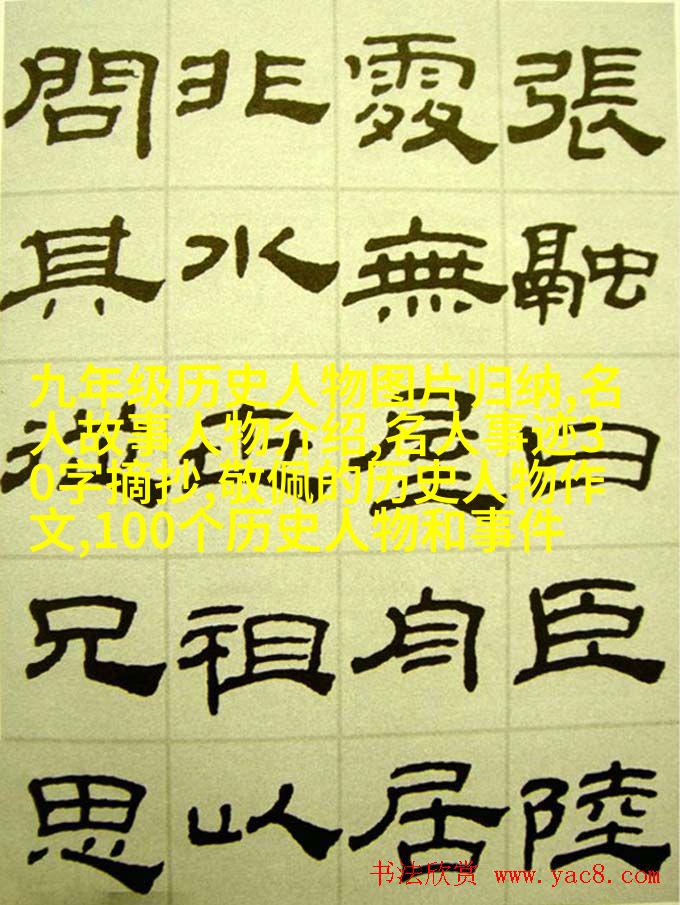 張融曰臣陸
處無屋舟居
非水祖以
問其從兄思
九年级历史人物图片归纳,名
人故事人物介绍,名人事迹3
0字摘抄,敬佩的历史人物作
文,100个历史人物和事件
书法欣赏 www.yac8.com